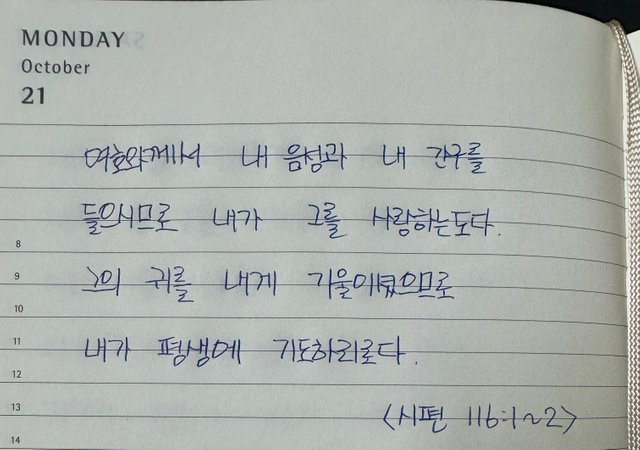 MONDAY
October
21
여호와께서 내 음성과 내 간구를
들으시므로 내가 그를 사랑하는도다.
8
9
그의 귀를 내게 기울이셨으므로
10
11
내가 평생에 기도하리로다.
12
13
<시편 116:1~2>
14